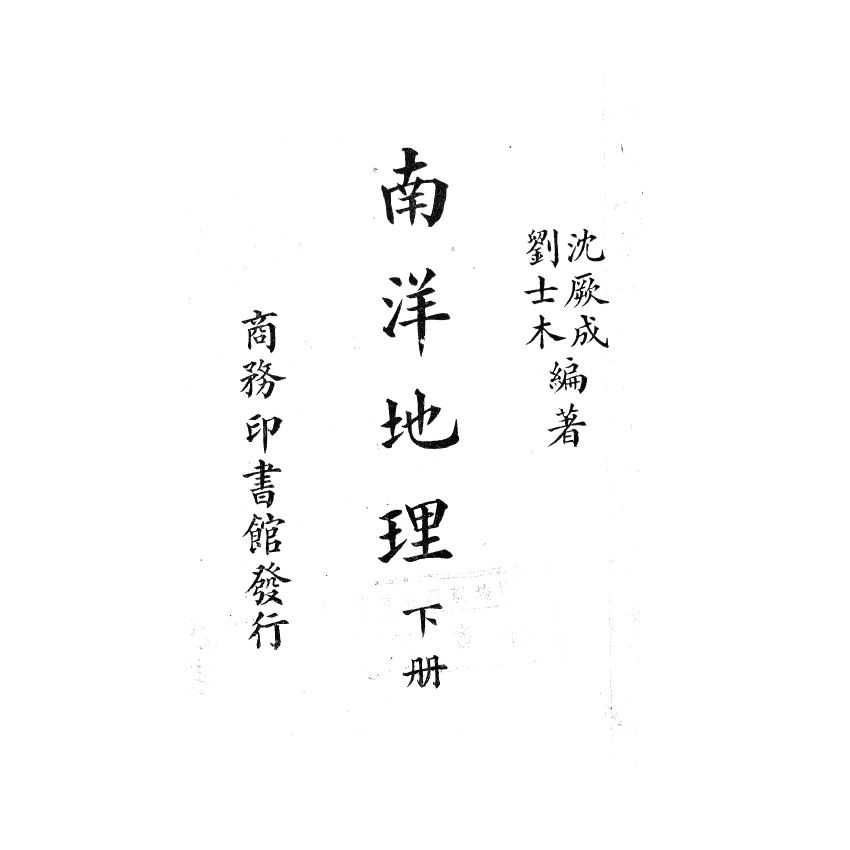 沈厥成
劉士木
編著
南洋地理
下册
商務印書館發行